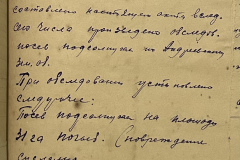 составлено настоящего акта в след.
его числа произведено обследов.
посев подсолнуха по Андреевскому
им. ов.
При обследовании установлено
следующее:
Посев подсолнуха на площади
31 га погиб. (повреждение